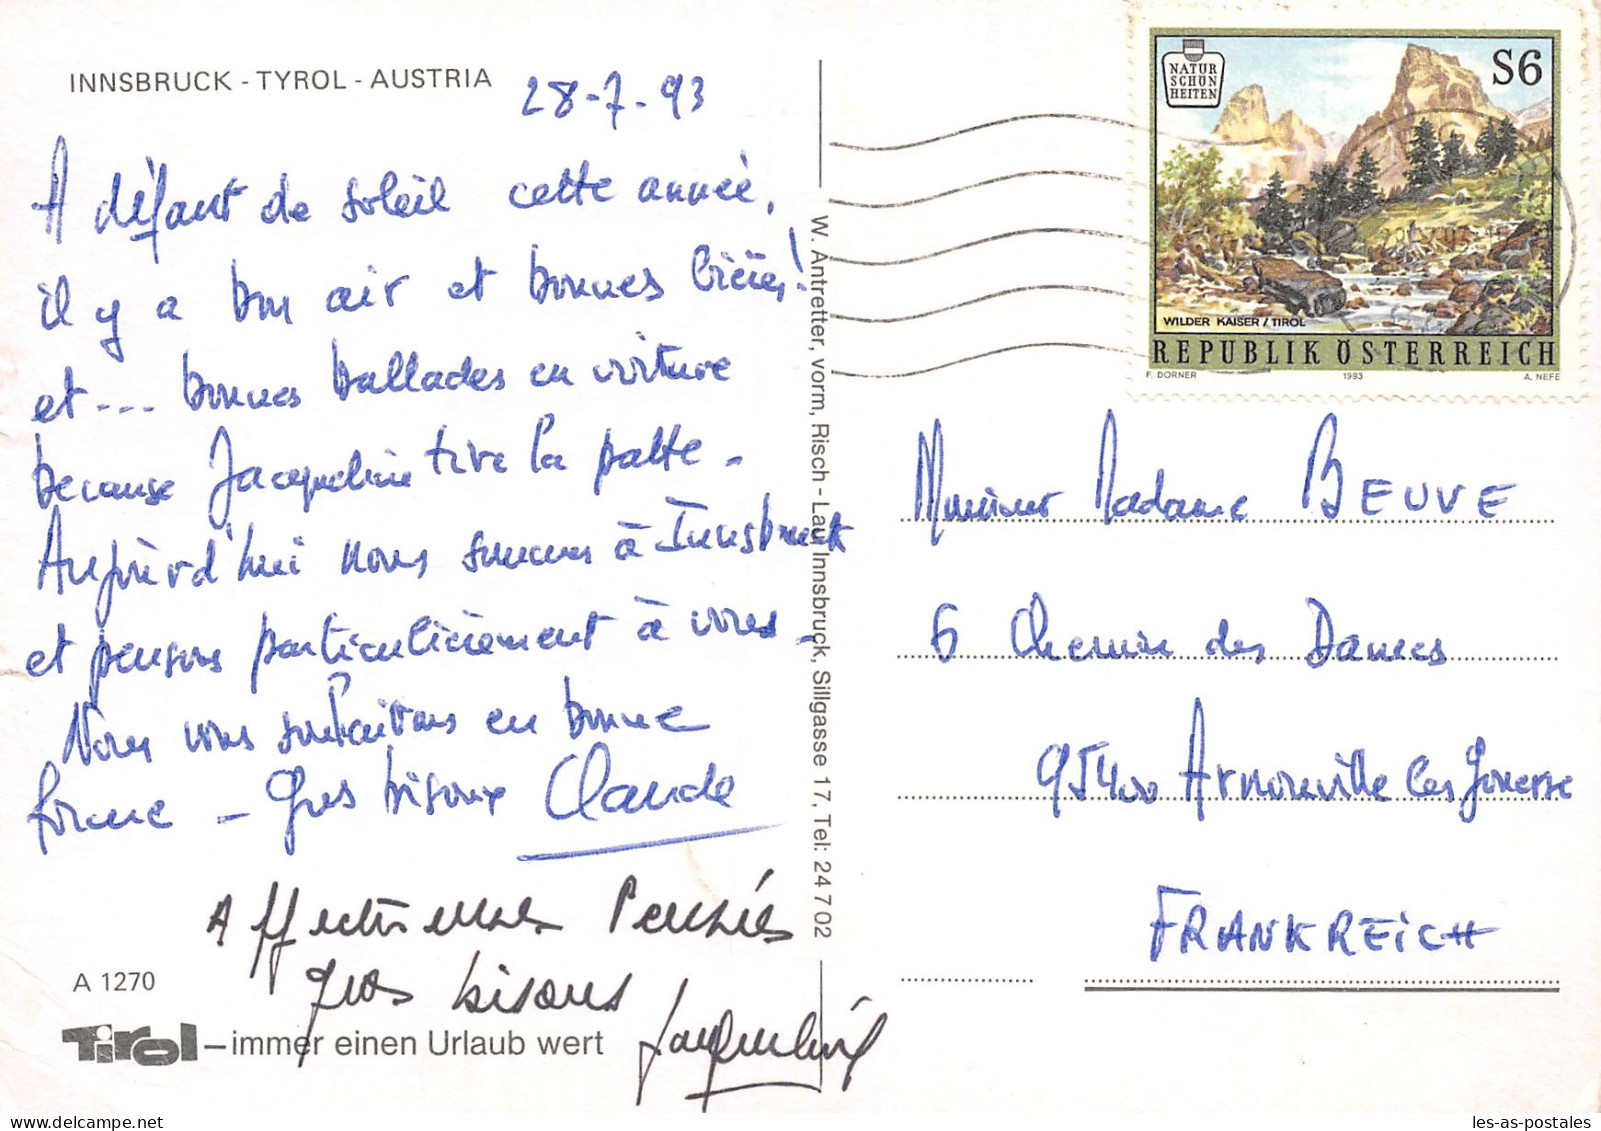 INNSBRUCK - TYROL - AUSTRIA
28-7-93
A défaut de soleil cette année,
il y a bon air et bonnes bières!
et --- bonnes ballades en voiture
because Jacqueline tire la patte -
Aujourd'hui nous sommes à Innsbruck
et pensons particulièrement à vous -
Nous vous souhaitons en bonne
forme - Gros bisoux Claude
Affectueuses Pensées
gros bisous
Jacqueline
A 1270
Tirol – immer einen Urlaub wert
W. Antretter, vorm, Risch-Lau, Innsbruck, Sillgasse 17, Tel: 24 7 02
NATUR
SCHÖN
HEITEN
S6
WILDER KAISER / TIROL
REPUBLIK ÖSTERREICH
F. DORNER 1993 A. NEFE
Monsieur Madame BEUVE
6 Chemin des Dames
95400 Arnouville les Gonesse
FRANKREICH
les-as-postales